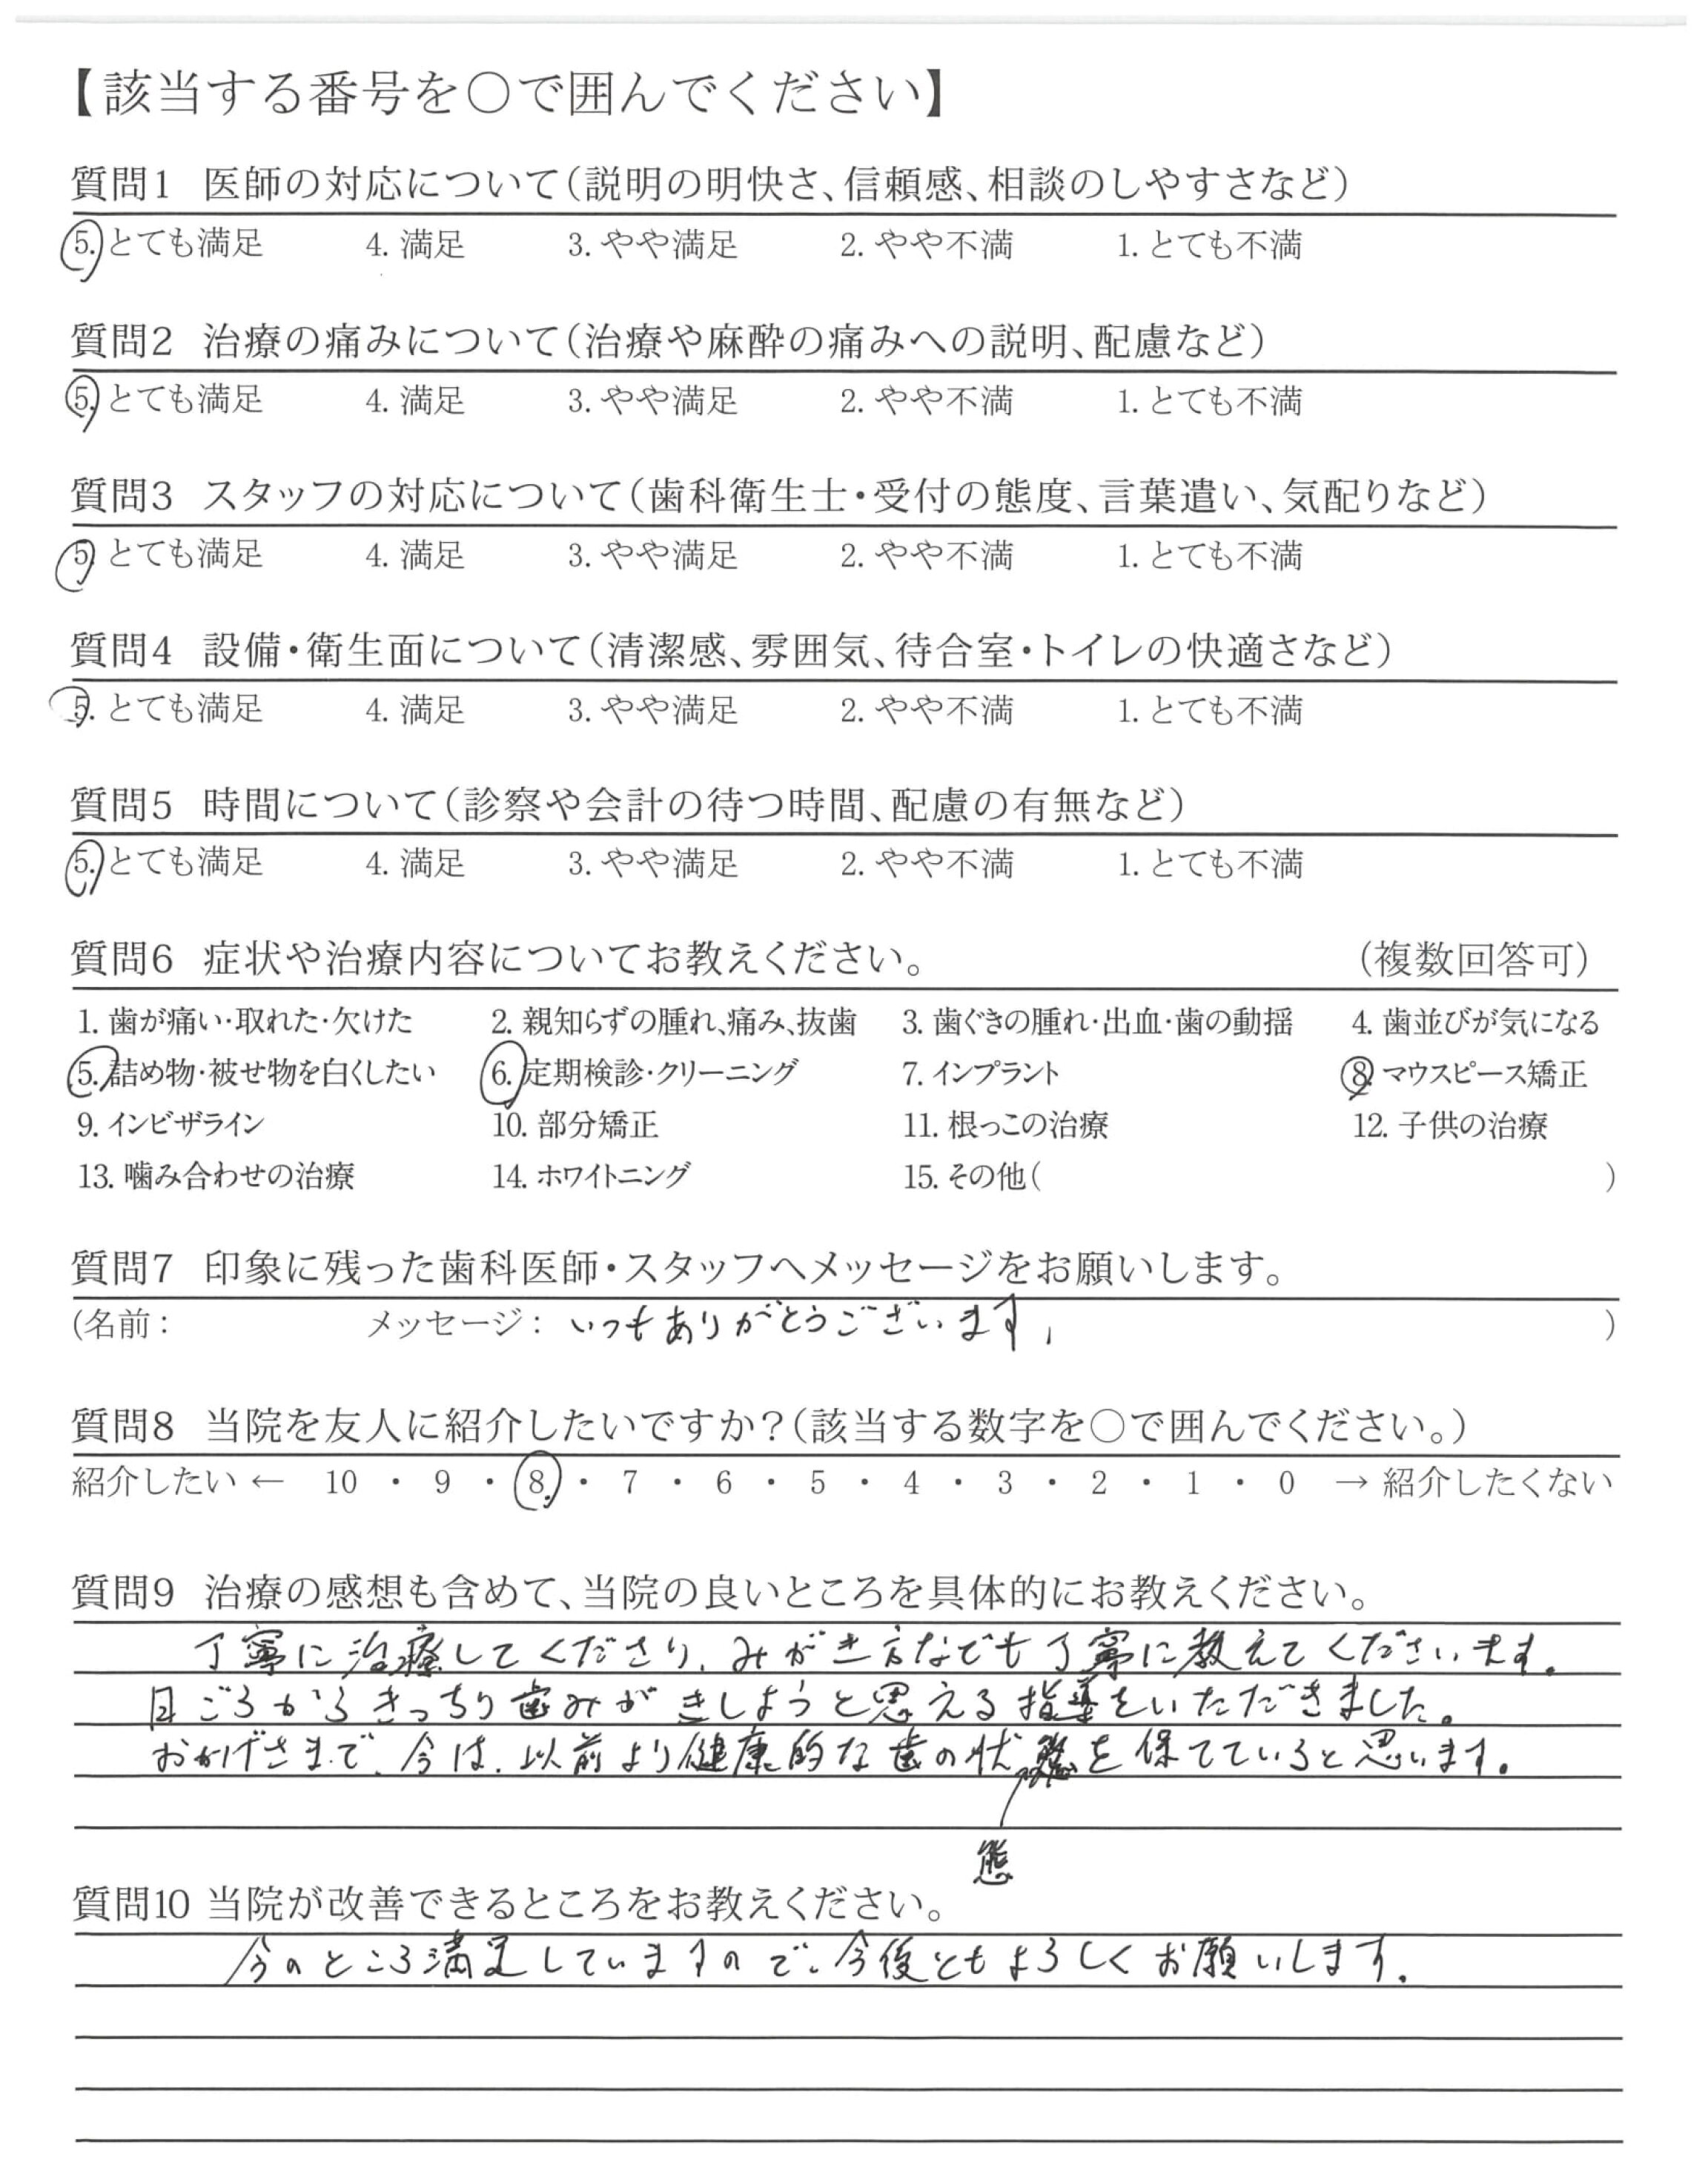 【該当する番号を○で囲んでください】
質問1 医師の対応について(説明の明快さ、信頼感、相談のしやすさなど)
5. とても満足 4. 満足 3. やや満足 2. やや不満 1. とても不満
質問2 治療の痛みについて(治療や麻酔の痛みへの説明、配慮など)
5. とても満足 4. 満足 3. やや満足 2. やや不満 1. とても不満
質問3 スタッフの対応について(歯科衛生士・受付の態度、言葉遣い、気配りなど)
5. とても満足 4. 満足 3. やや満足 2. やや不満 1. とても不満
質問4 設備・衛生面について(清潔感、雰囲気、待合室・トイレの快適さなど)
5. とても満足 4. 満足 3. やや満足 2. やや不満 1. とても不満
質問5 時間について(診察や会計の待つ時間、配慮の有無など)
5. とても満足 4. 満足 3. やや満足 2. やや不満 1. とても不満
質問6 症状や治療内容についてお教えください。 (複数回答可)
1. 歯が痛い・取れた・欠けた 2. 親知らずの腫れ、痛み、抜歯 3. 歯ぐきの腫れ・出血・歯の動揺 4. 歯並びが気になる
5. 詰め物・被せ物を白くしたい 6. 定期検診・クリーニング 7. インプラント 8. マウスピース矯正
9. インビザライン 10. 部分矯正 11. 根っこの治療 12. 子供の治療
13. 噛み合わせの治療 14. ホワイトニング 15. その他( )
質問7 印象に残った歯科医師・スタッフへメッセージをお願いします。
(名前: メッセージ: いつもありがとうございます。 )
質問8 当院を友人に紹介したいですか?(該当する数字を○で囲んでください。)
紹介したい ← 10 ・ 9 ・ 8 ・ 7 ・ 6 ・ 5 ・ 4 ・ 3 ・ 2 ・ 1 ・ 0 → 紹介したくない
質問9 治療の感想も含めて、当院の良いところを具体的にお教えください。
丁寧に治療してくださり、みがき方なども丁寧に教えてくださいます。
日ごろからきっちり歯みがきしようと思える指導をいただきました。
おかげさまで、今は、以前より健康的な歯の状態を保てていると思います。
態
質問10 当院が改善できるところをお教えください。
今のところ満足していますので、今後ともよろしくお願いします。